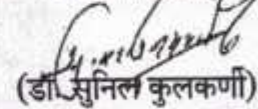 (डॉ. सुनिल कुलकर्णी)